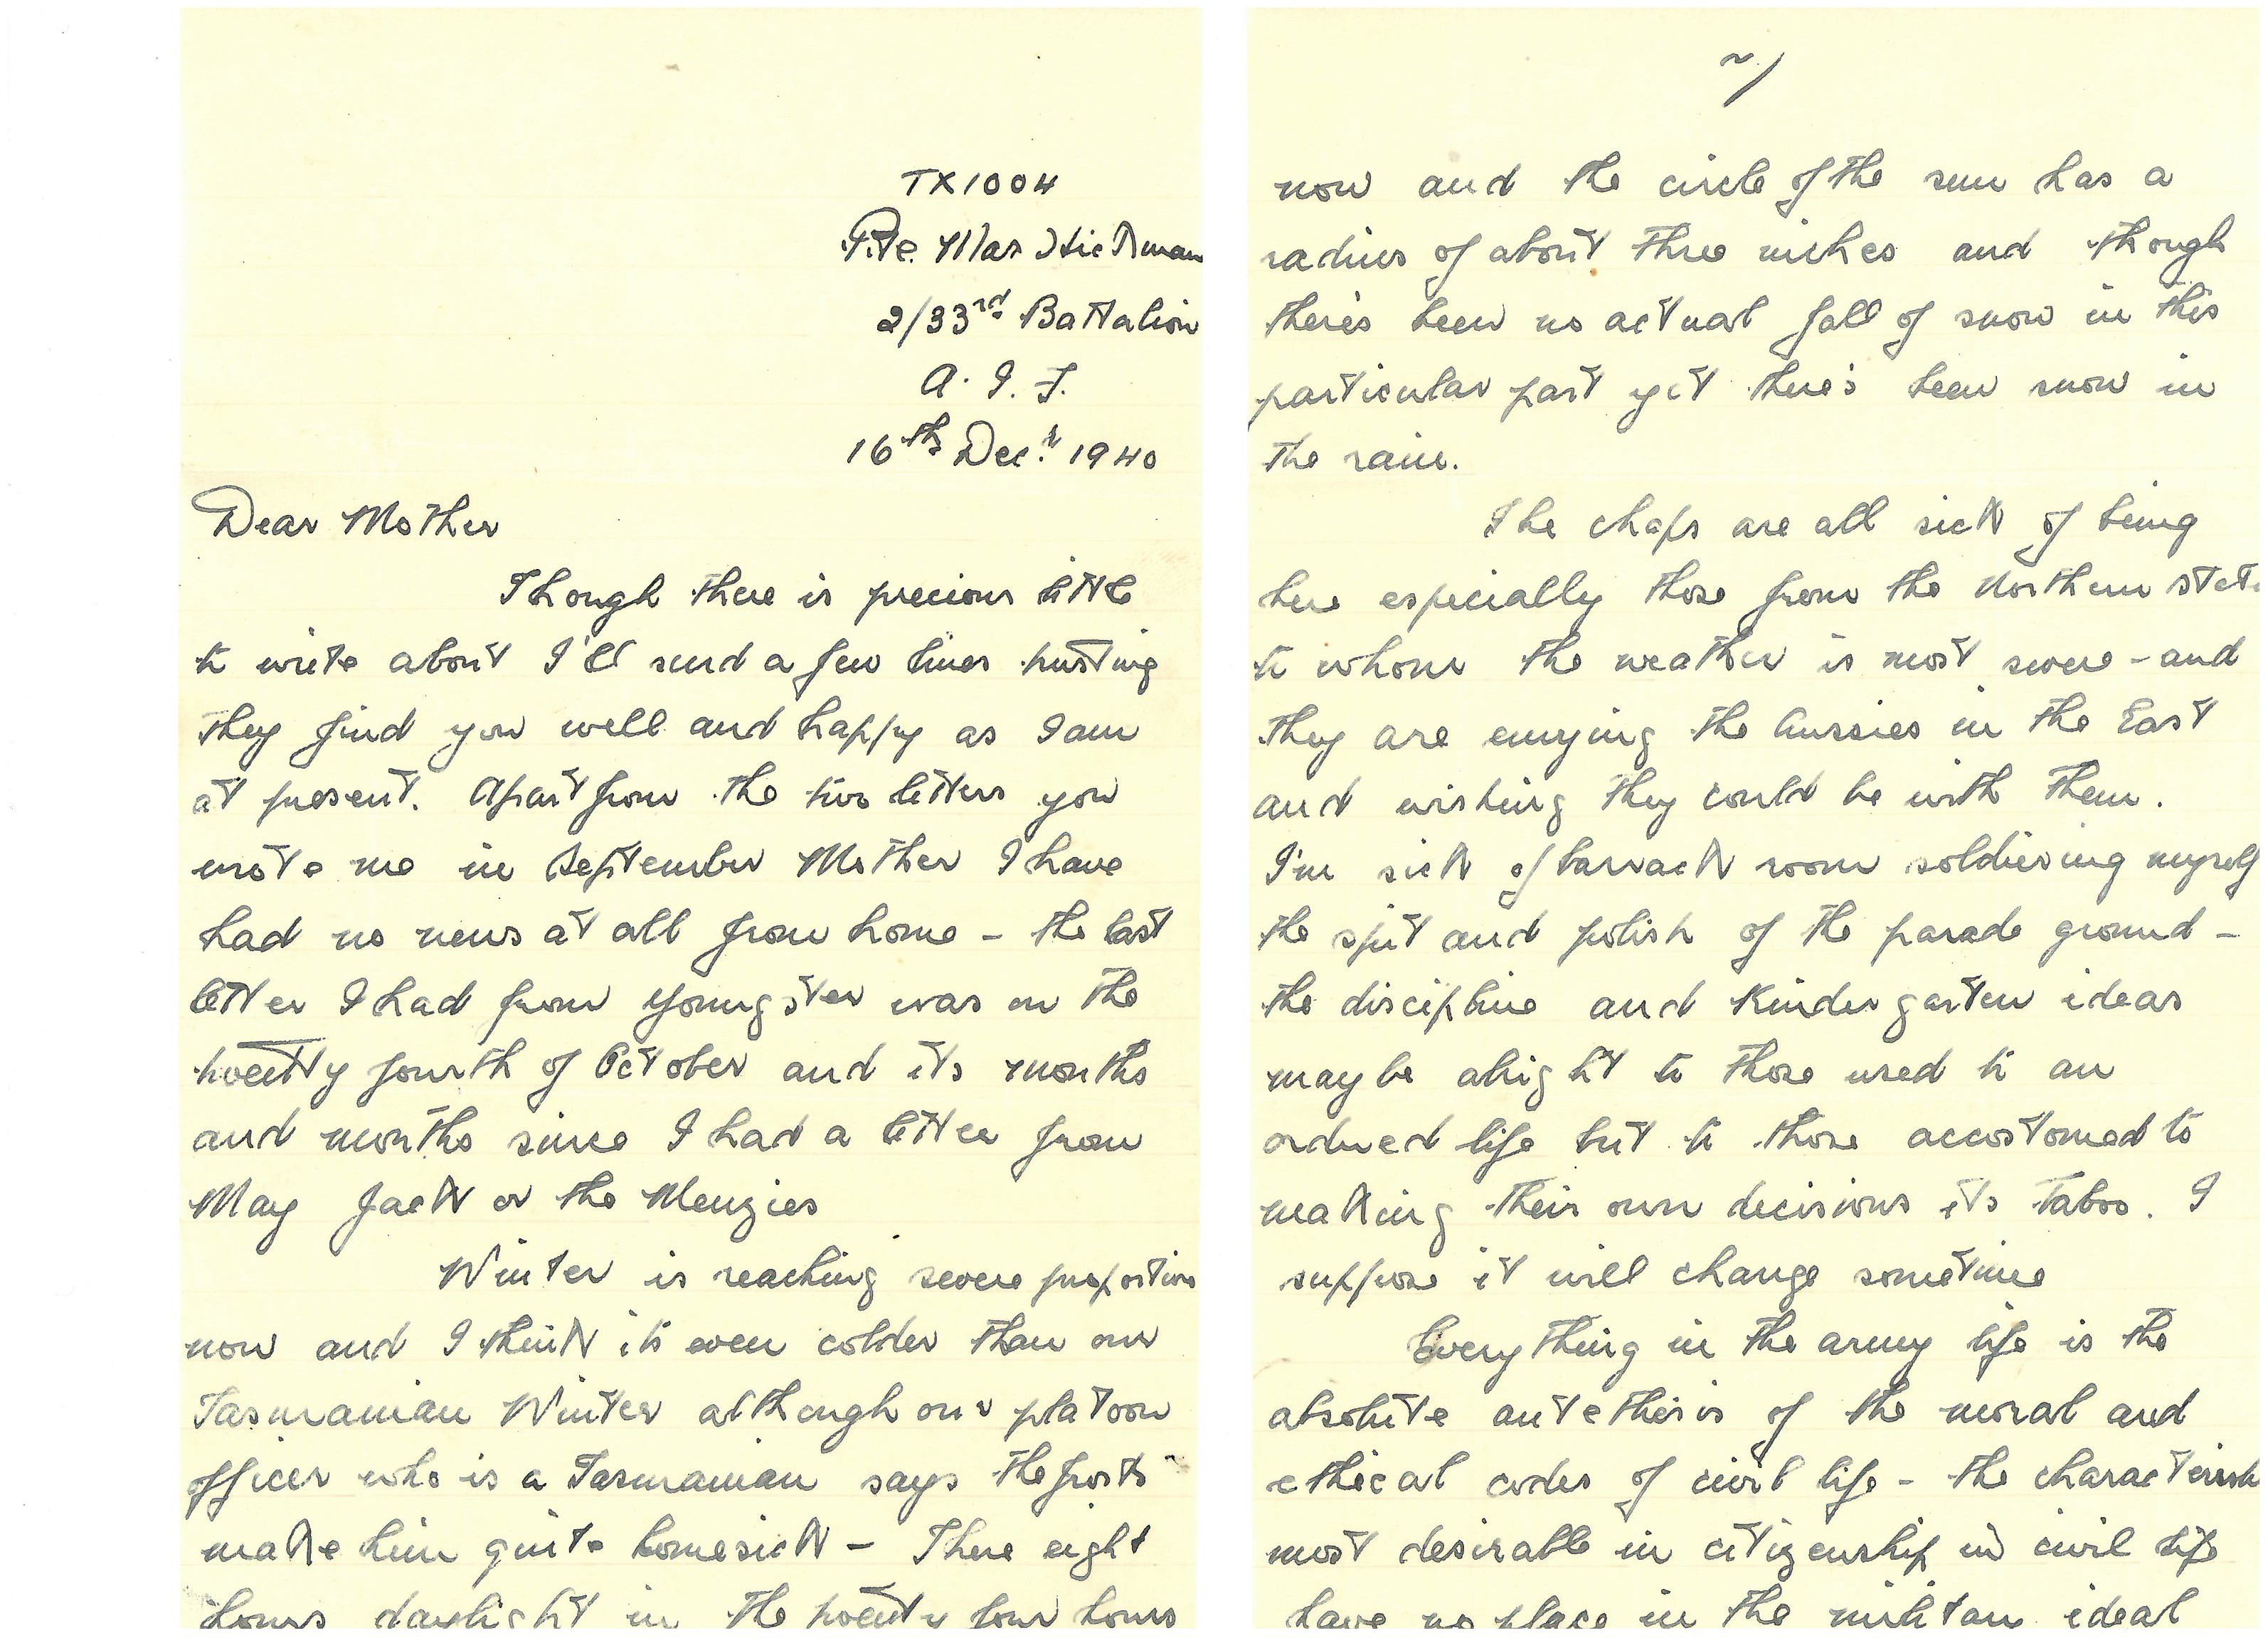 TX1004
Pte. Max Hickman
2/33rd Battalion
A. I. F.
16th Decr. 1940
Dear Mother
Though there is precious little
to write about I'll send a few lines trusting
they find you well and happy as I am
at present. Apart from the two letters you
wrote me in September Mother I have
had no news at all from home - the last
letter I had from Youngster was on the
twenty fourth of October and its months
and months since I had a letter from
May Jack or the Menzies
Winter is reaching severe proportions
now and I think its even colder than our
Tasmanian Winter although our platoon
officer who is a Tasmanian says the frosts
make him quite homesick - There eight
hours daylight in the twenty four hours
2/
now and the circle of the sun has a
radius of about three inches and though
there's been no actual fall of snow in this
particular part yet there's been snow in
the rain.
The chaps are all sick of being
here especially those from the Northern state
to whom the weather is most severe - and
they are envying the Aussies in the East
and wishing they could be with them.
I'm sick of barrack room soldiering myself
the spit and polish of the parade ground -
the discipline and Kindergarten ideas
maybe alright to those used to an
ordered life but to those accustomed to
making their own decisions its taboo. I
suppose it will change sometime
Everything in the army life is the
absolute antethisis of the moral and
ethical codes of civil life - the characteristi
most desirable in citizenship in civil life
have no place in the military ideal